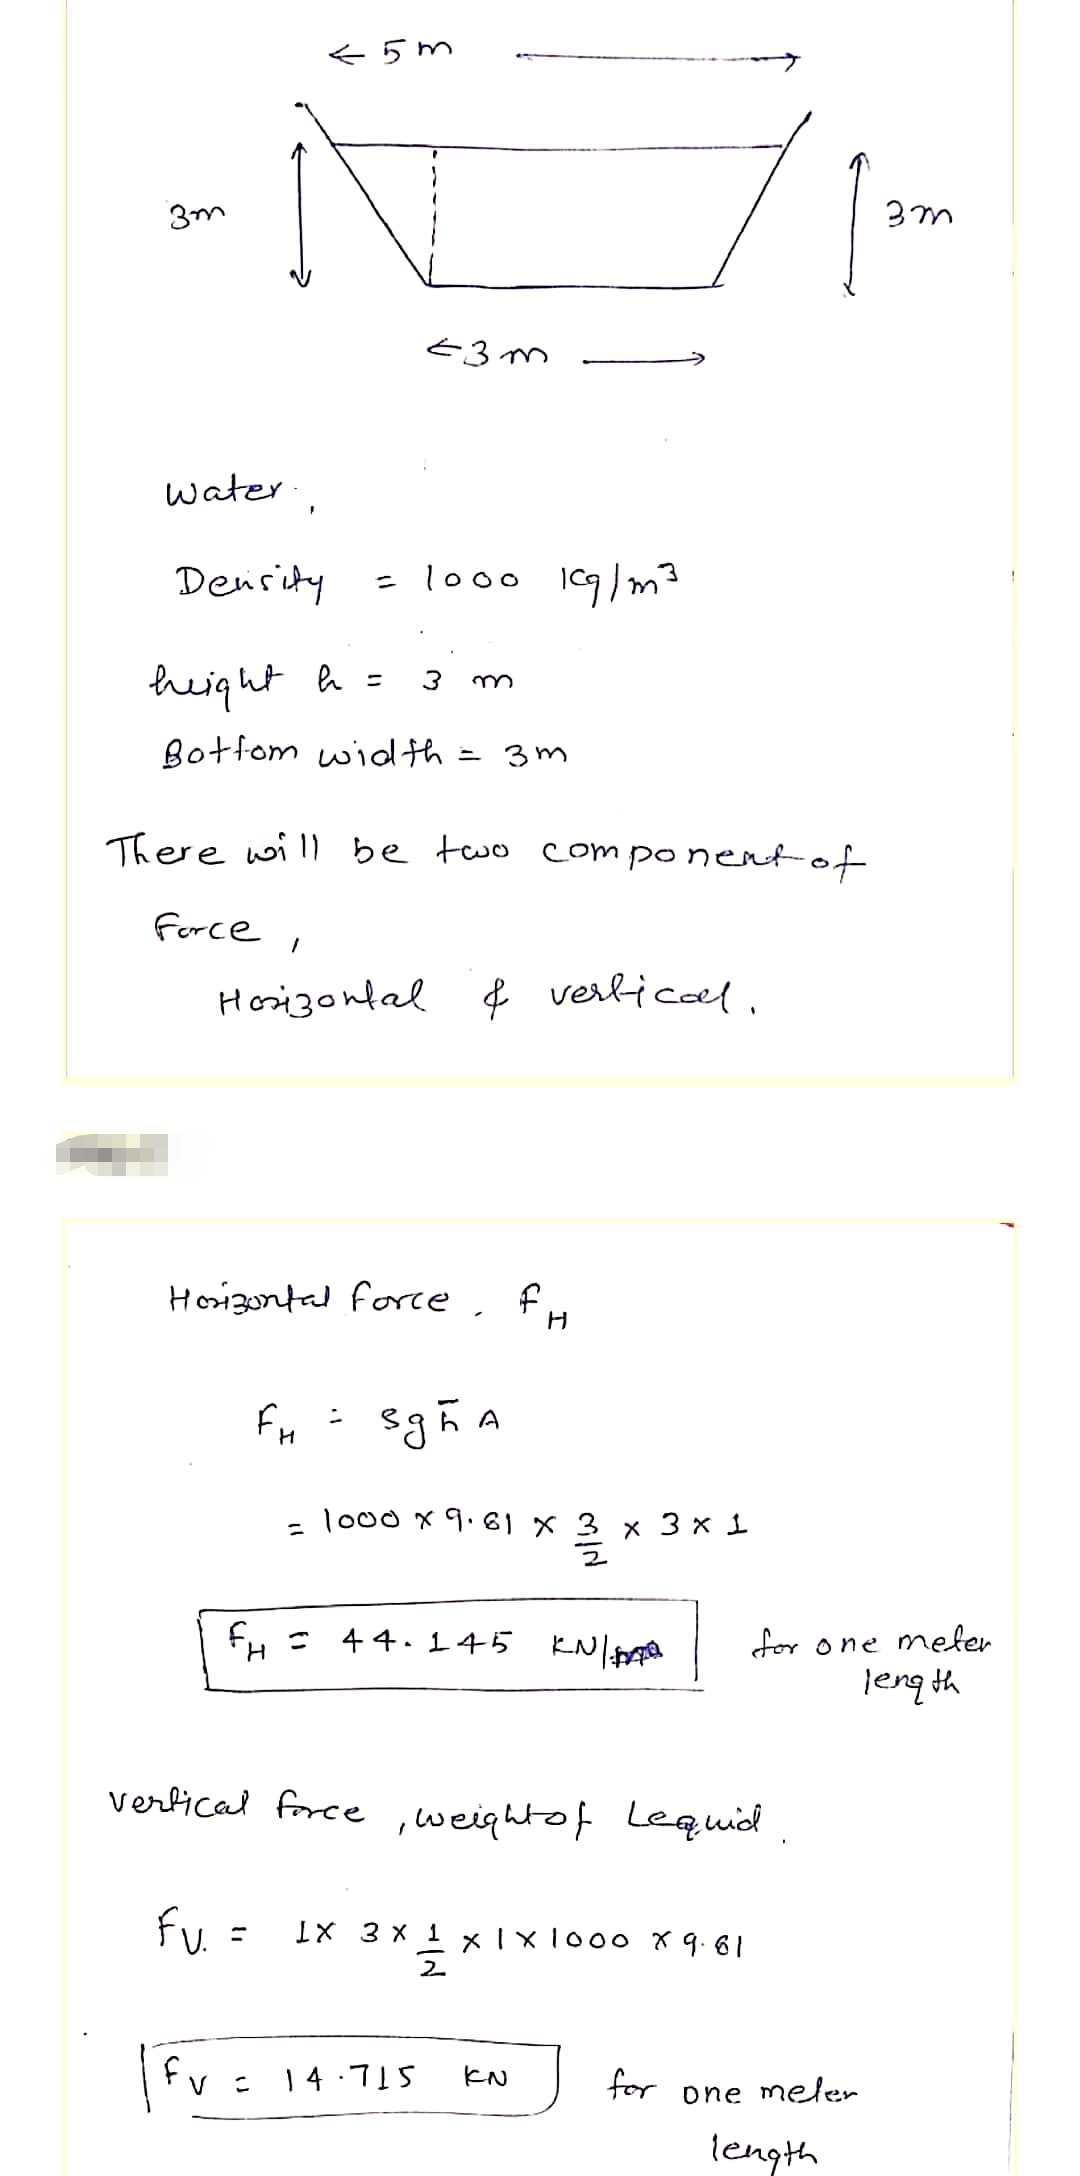 ← 5 m →
3m
3m
← 3 m →
water,
Density = 1000 kg/m³
height h = 3 m
Bottom width = 3m
There will be two component of
Force,
Horizontal & vertical.
Horizontal force, FH
FH = ρg h̄ A
= 1000 × 9.81 × 3/2 × 3 × 1
FH = 44.145 KN/ for one meter
length
vertical force, weight of Lequid.
FV. = 1 × 3 × 1/2 × 1 × 1000 × 9.81
FV = 14.715 KN for one meter
length